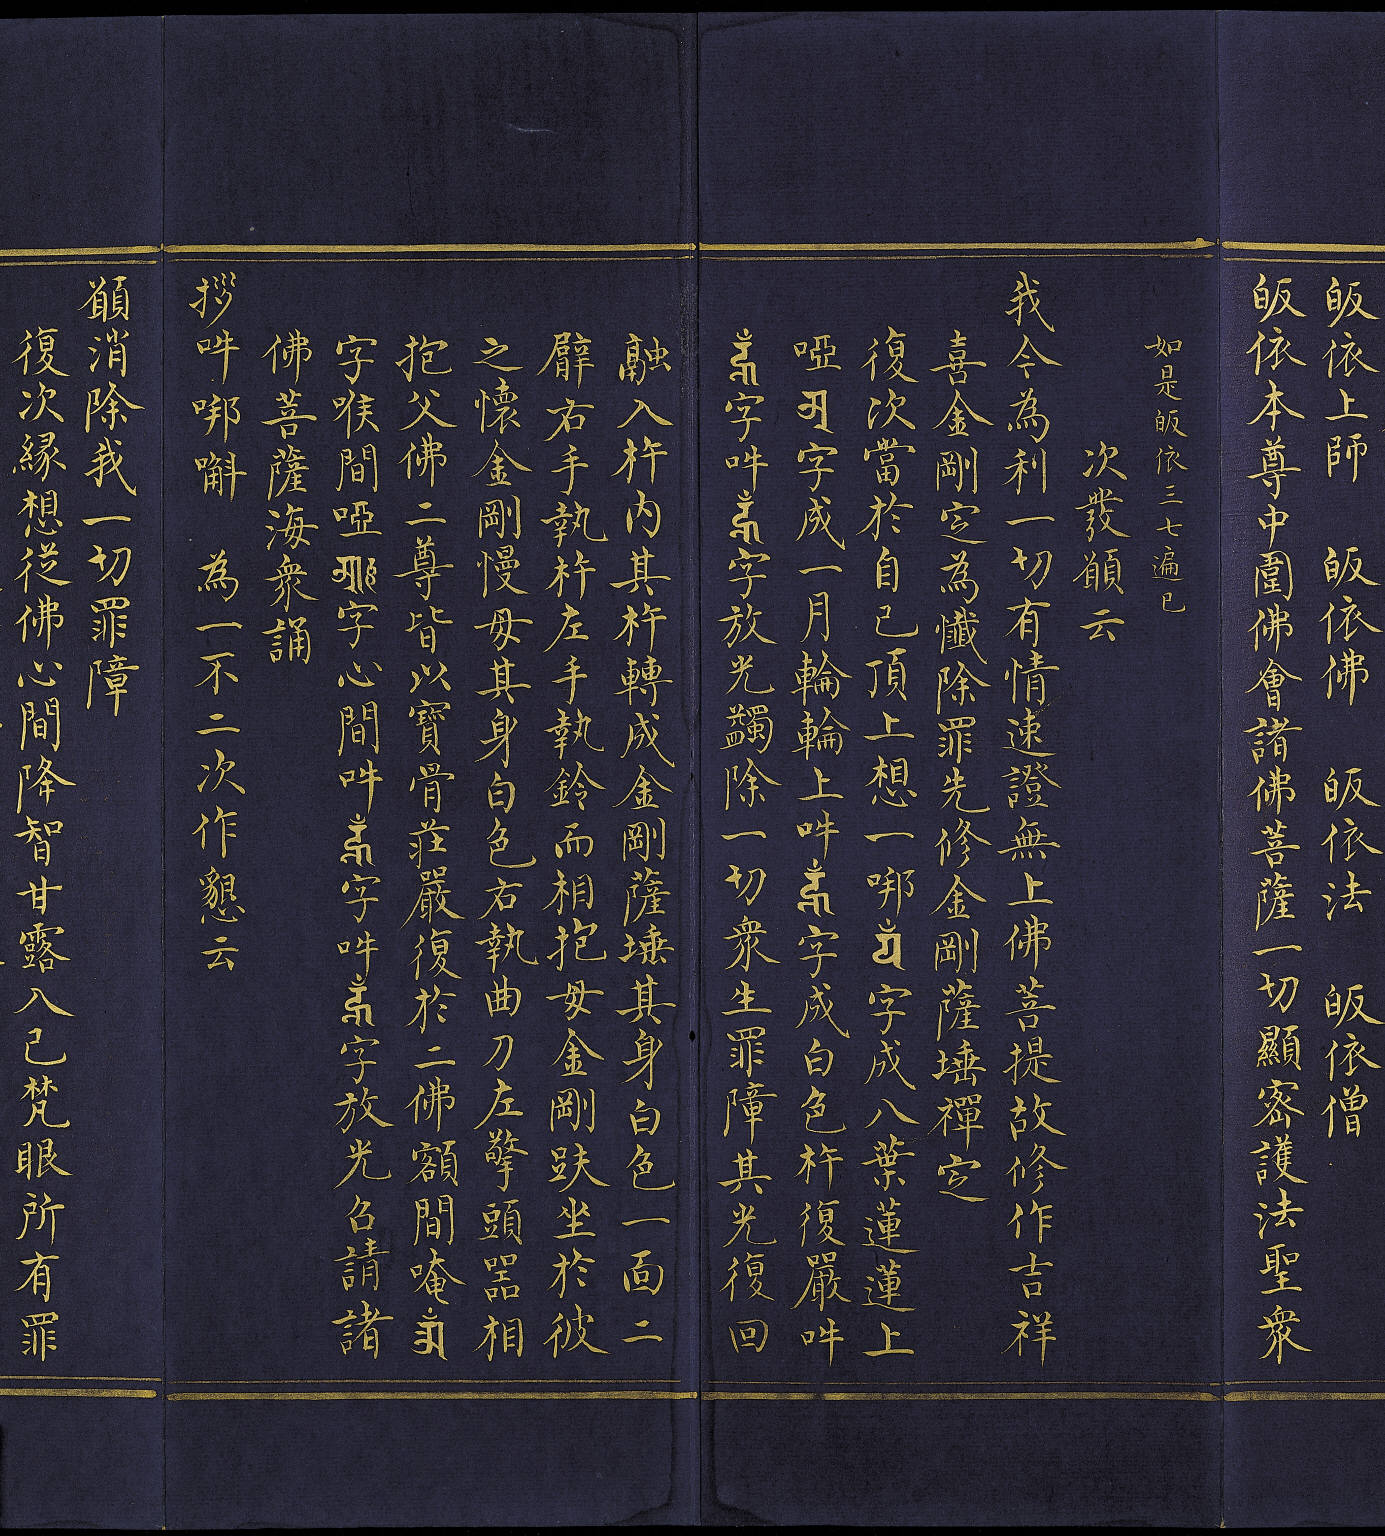 皈依上師　皈依佛　皈依法　皈依僧
皈依本尊中圍佛會諸佛菩薩一切顯密護法聖衆
如是皈依三七遍已
次發願云
我今為利一切有情速證無上佛菩提故修作吉祥
喜金剛定為懺除罪先修金剛薩埵禪定
復次當於自己頂上想一㖿字成八葉蓮蓮上
啞字成一月輪輪上吽字成白色杵復嚴吽
字吽字放光蠲除一切衆生罪障其光復回
融入杵内其杵轉成金剛薩埵其身白色一面二
臂右手執杵左手執鈴而相抱母金剛趺坐於彼
之懷金剛慢母其身白色右執曲刀左擎頭器相
抱父佛二尊皆以寶骨莊嚴復於二佛額間唵
字喉間啞字心間吽字吽字放光召請諸
佛菩薩海衆誦
拶吽㖿斛　為一不二次作懇云
願消除我一切罪障
復次緣想從佛心間降智甘露入己梵眼所有罪